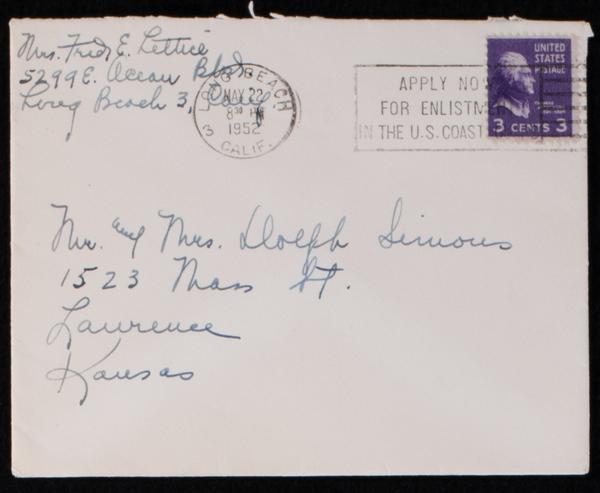 Mrs. Fred E. Lettice
5299 E. Ocean Blvd
Long Beach 3, Calif
LONG BEACH
3
MAY 22
8 30 PM
1952
CALIF.
APPLY NO
FOR ENLISTME
IN THE U.S. COAST
UNITED
STATES
POSTAGE
3 CENTS 3
Mr. and Mrs. Dolph Simons
1523 Mass St.
Lawrence
Kansas